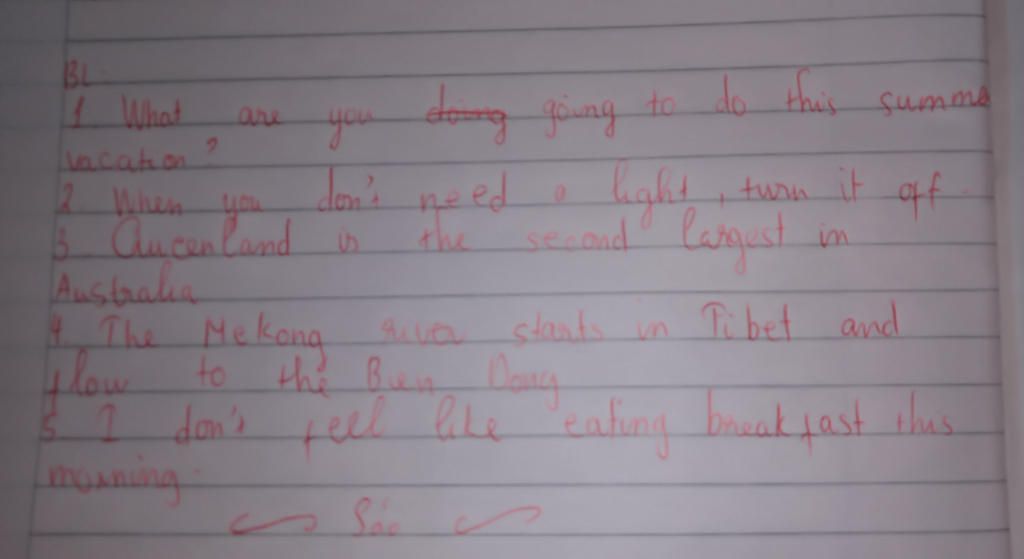 BL.
1 What are you doing going to do this summe
vacation?
2 When you don't need a light, turn it off.
3 Queenland is the second largest in
Australia
4. The Mekong river starts in Tibet and
flow to the Bien Dong
5 I don't feel like eating breakfast this
morning.